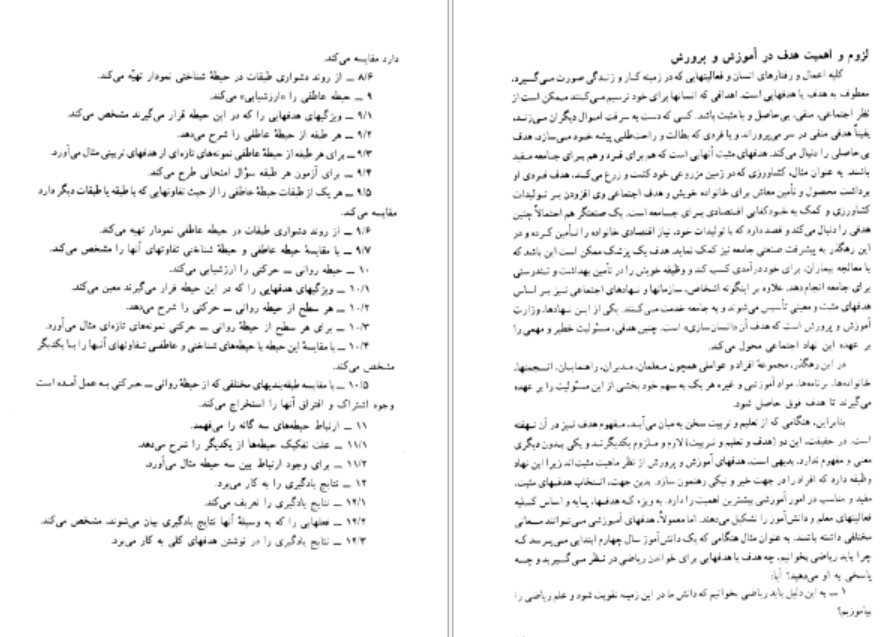 لزوم و اهمیت هدف در آموزش و پرورش
کلیه اعمال و رفتارهای انسان و فعالیتهایی که در زمینه کار و زندگی صورت می‌گیرد،
معطوف به هدف یا هدفهایی است. اهدافی که انسانها برای خود ترسیم می‌کنند ممکن است از
نظر اجتماعی، منفی، بی‌حاصل و یا مثبت باشد. کسی که دست به سرقت اموال دیگران می‌زند،
یقیناً هدفی منفی در سر می‌پروراند و یا فردی که بطالت و راحت‌طلبی پیشه خود می‌سازد، هدف
بی‌حاصلی را دنبال می‌کند. هدفهای مثبت آنهایی است که هم برای فرد و هم برای جامعه مفید
باشند. به عنوان مثال، کشاورزی که در زمین مزروعی خود کشت و زرع می‌کند، هدف فردی او
برداشت محصول و تأمین معاش برای خانواده خویش و هدف اجتماعی وی افزودن بر تولیدات
کشاورزی و کمک به خودکفایی اقتصادی برای جامعه است. یک صنعتگر هم احتمالاً چنین
هدفی را دنبال می‌کند و قصد دارد که با تولیدات خود، نیاز اقتصادی خانواده را تأمین کرده و در
این رهگذر به پیشرفت صنعتی جامعه نیز کمک نماید. هدف یک پزشک ممکن است این باشد که
با معالجه بیماران، برای خود درآمدی کسب کند و وظیفه خویش را در تأمین بهداشت و تندرستی
برای جامعه انجام دهد. علاوه بر اینگونه اشخاص، سازمانها و نهادهای اجتماعی نیز بر اساس
هدفهای مثبت و معینی تأسیس می‌شوند و به جامعه خدمت می‌کنند. یکی از این نهادها، وزارت
آموزش و پرورش است که هدف آن «انسان‌سازی» است. چنین هدفی، مسئولیت خطیر و مهمی را
بر عهده این نهاد اجتماعی محول می‌کند.
در این رهگذر، مجموعهٔ افراد و عواملی همچون معلمان، مدیران، راهنمایان، انجمنها،
خانواده‌ها، برنامه‌ها، مواد آموزشی و غیره هر یک به سهم خود بخشی از این مسئولیت را بر عهده
می‌گیرند تا هدف فوق حاصل شود.
بنابراین، هنگامی که از تعلیم و تربیت سخن به میان می‌آید، مفهوم هدف نیز در آن نهفته
است. در حقیقت، این دو (هدف و تعلیم و تربیت) لازم و ملزوم یکدیگرند و یکی بدون دیگری
معنی و مفهوم ندارد. بدیهی است، هدفهای آموزش و پرورش از نظر ماهیت مثبت‌اند زیرا این نهاد
وظیفه دارد که افراد را در جهت خیر و نیکی رهنمون سازد. بدین جهت، انتخاب هدفهای مثبت،
مفید و مناسب در امور آموزشی بیشترین اهمیت را دارد. به ویژه که هدفها، پایه و اساس کلیه
فعالیتهای معلم و دانش‌آموز را تشکیل می‌دهند. اما معمولاً، هدفهای آموزشی می‌توانند معانی
مختلفی داشته باشند. به عنوان مثال هنگامی که یک دانش‌آموز سال چهارم ابتدایی می‌پرسد که
چرا باید ریاضی بخوانیم، چه هدف یا هدفهایی برای خواندن ریاضی در نظر می‌گیرید و چه
پاسخی به او می‌دهید؟ آیا:
۱ ــ به این دلیل باید ریاضی بخوانیم که دانش ما در این زمینه تقویت شود و علم ریاضی را
بیاموزیم؟
دارد مقایسه می‌کند.
۸/۶ ــ از روند دشواری طبقات در حیطهٔ شناختی نمودار تهیّه می‌کند.
۹ ــ حیطه عاطفی را «ارزشیابی» می‌کند.
۹/۱ ــ ویژگیهای هدفهایی را که در این حیطه قرار می‌گیرند مشخص می‌کند.
۹/۲ ــ هر طبقه از حیطهٔ عاطفی را شرح می‌دهد.
۹/۳ ــ برای هر طبقه از حیطهٔ عاطفی نمونه‌های تازه‌ای از هدفهای تربیتی مثال می‌آورد.
۹/۴ ــ برای آزمون هر طبقه سؤال امتحانی طرح می‌کند.
۹/۵ ــ هر یک از طبقات حیطهٔ عاطفی را از حیث تفاوتهایی که با طبقه یا طبقات دیگر دارد
مقایسه می‌کند.
۹/۶ ــ از روند دشواری طبقات در حیطه عاطفی نمودار تهیه می‌کند.
۹/۷ ــ با مقایسهٔ حیطه عاطفی و حیطهٔ شناختی تفاوتهای آنها را مشخص می‌کند.
۱۰ ــ حیطه روانی ــ حرکتی را ارزشیابی می‌کند.
۱۰/۱ ــ ویژگیهای هدفهایی را که در این حیطه قرار می‌گیرند معین می‌کند.
۱۰/۲ ــ هر سطح از حیطهٔ روانی ــ حرکتی را شرح می‌دهد.
۱۰/۳ ــ برای هر سطح از حیطهٔ روانی ــ حرکتی نمونه‌های تازه‌ای مثال می‌آورد.
۱۰/۴ ــ با مقایسهٔ این حیطه با حیطه‌های شناختی و عاطفی تفاوتهای آنها را با یکدیگر
مشخص می‌کند.
۱۰/۵ ــ با مقایسه طبقه‌بندیهای مختلفی که از حیطهٔ روانی ــ حرکتی به عمل آمده است
وجوه اشتراک و افتراق آنها را استخراج می‌کند.
۱۱ ــ ارتباط حیطه‌های سه گانه را می‌فهمد.
۱۱/۱ ــ علت تفکیک حیطه‌ها از یکدیگر را شرح می‌دهد.
۱۱/۲ ــ برای وجود ارتباط بین سه حیطه مثال می‌آورد.
۱۲ ــ نتایج یادگیری را به کار می‌برد.
۱۲/۱ ــ نتایج یادگیری را تعریف می‌کند.
۱۲/۲ ــ فعلهایی را که به وسیلهٔ آنها نتایج یادگیری بیان می‌شوند، مشخص می‌کند.
۱۲/۳ ــ نتایج یادگیری را در نوشتن هدفهای کلی به کار می‌برد.